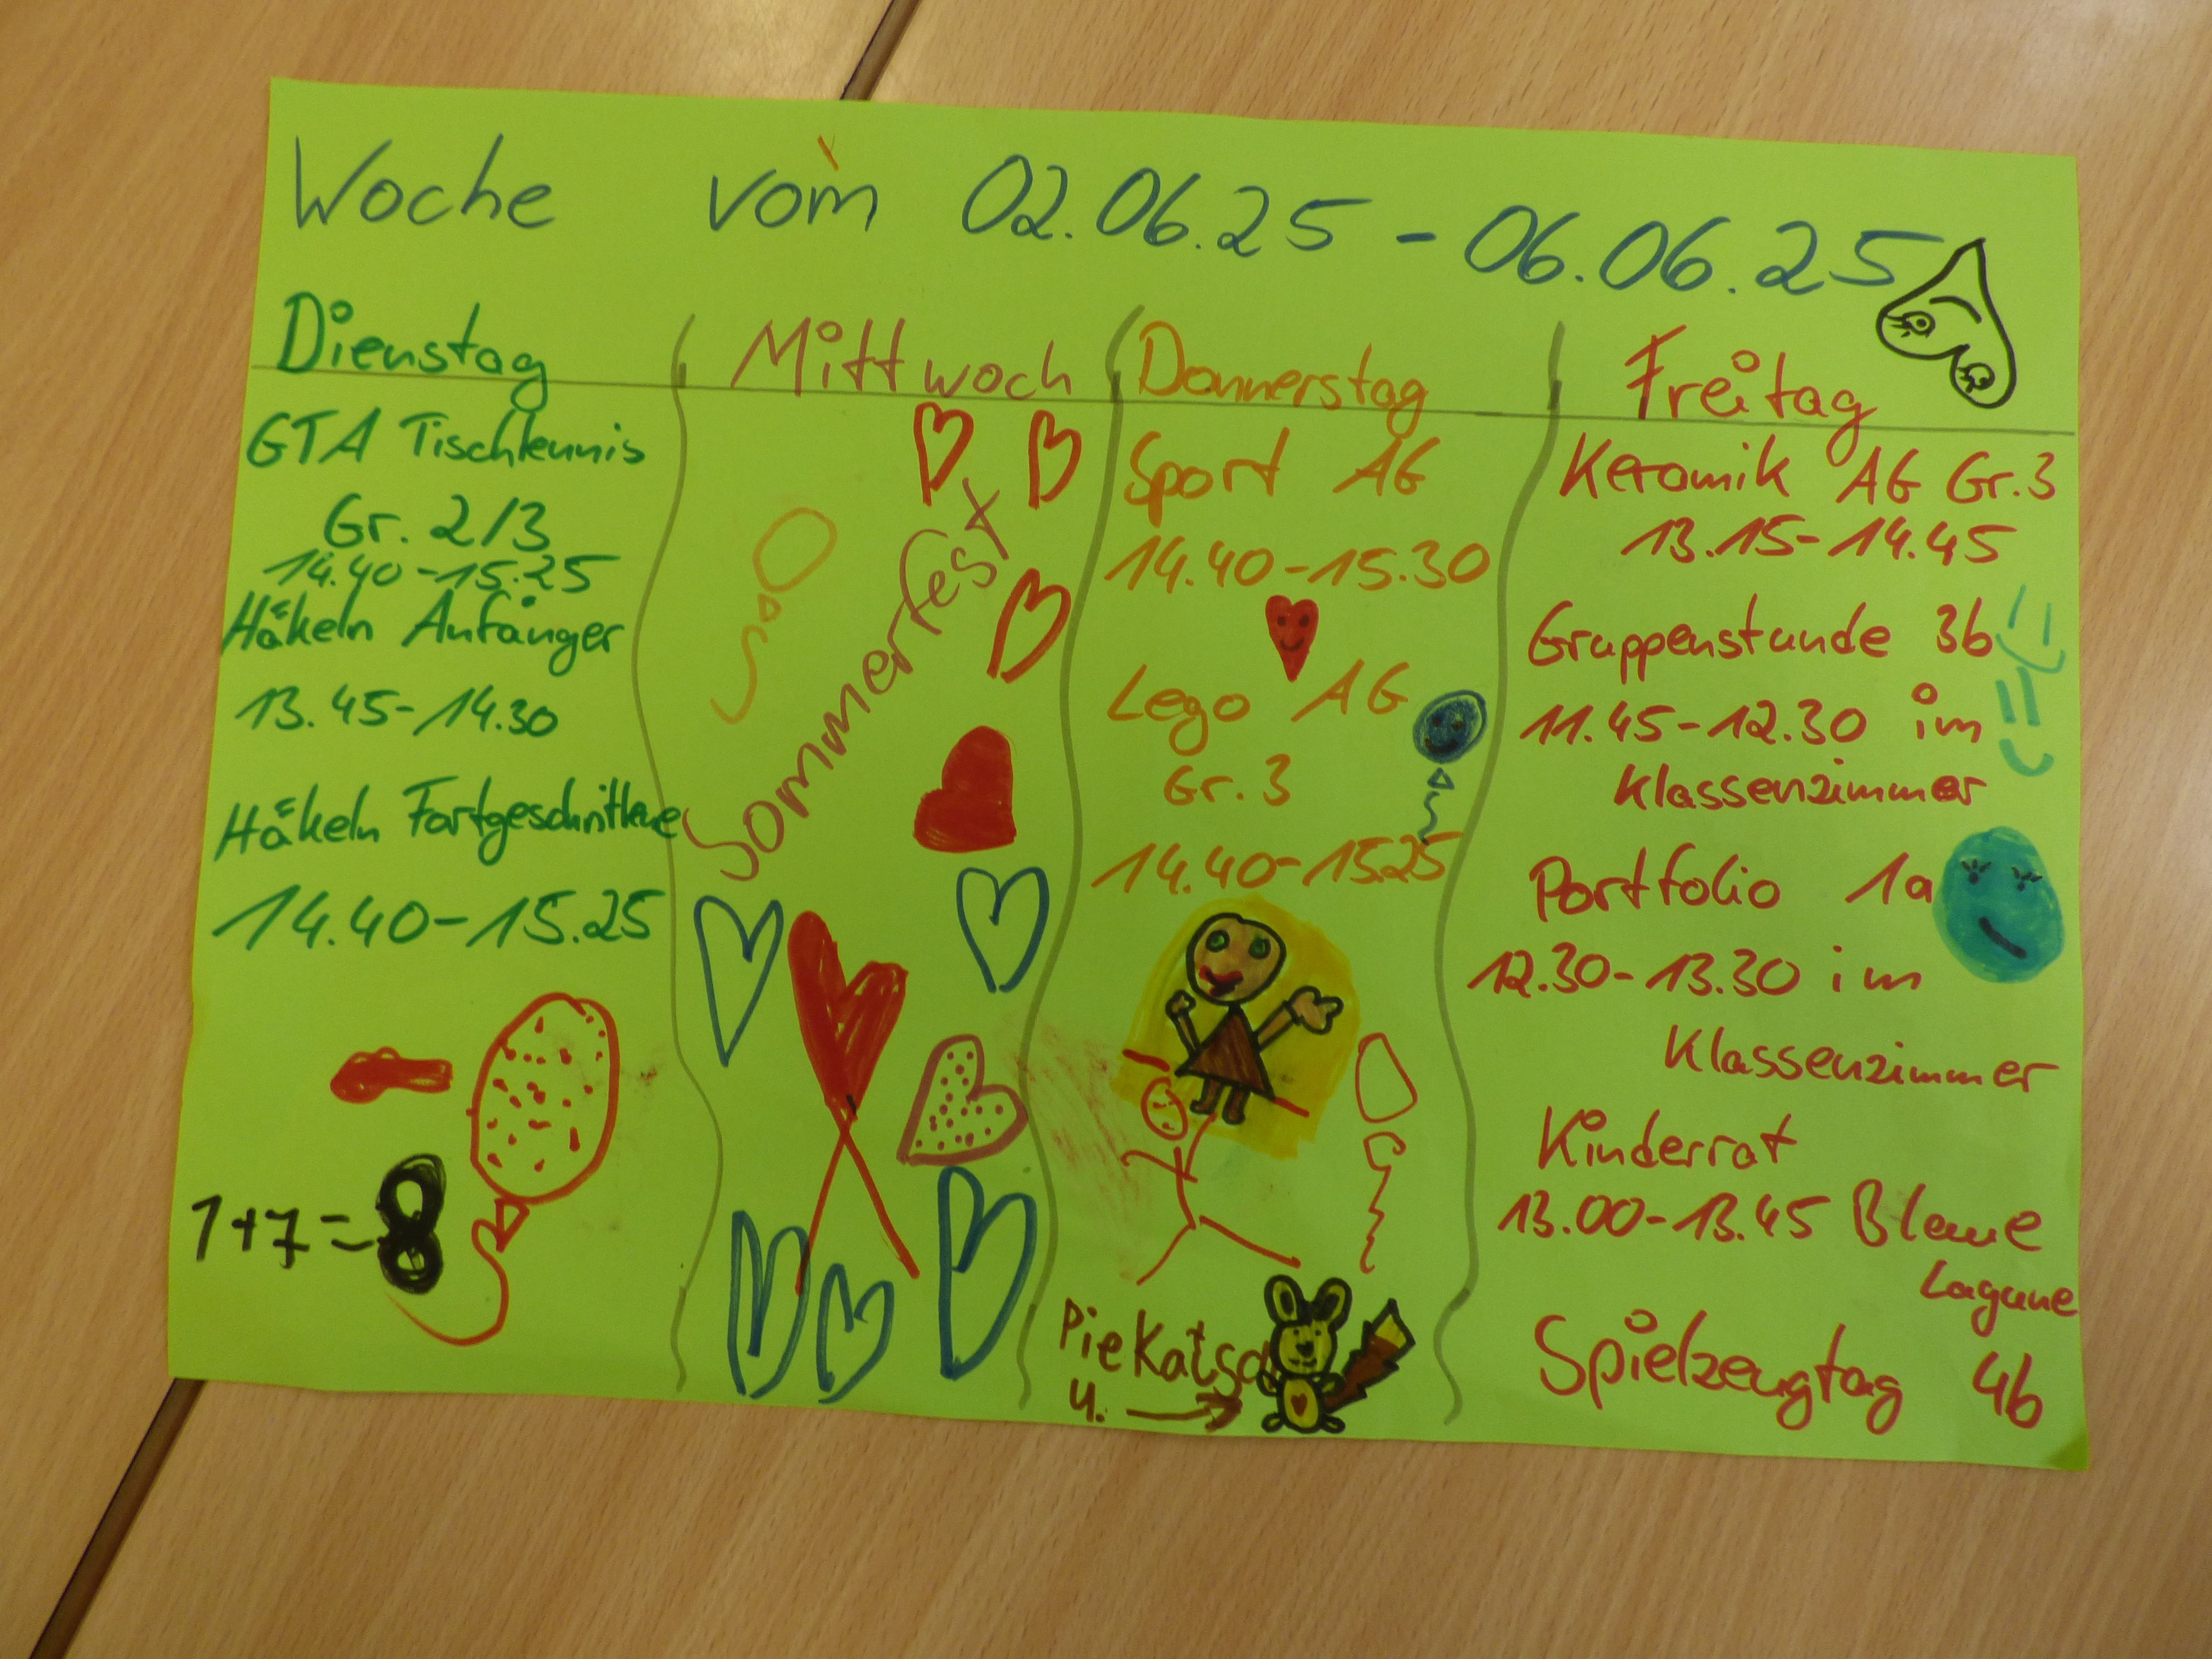 Woche vom 02.06.25 - 06.06.25
Dienstag
GTA Tischtennis
Gr. 2/3
14.40-15.25
Häkeln Anfänger
13.45-14.30
Häkeln Fortgeschrittene
14.40-15.25
1+7=8
Mittwoch
Sommerfest
Donnerstag
Sport AG
14.40-15.30
Lego AG
Gr. 3
14.40-15.25
PieKatsa
u.
Freitag
Keramik AG Gr.3
13.15-14.45
Gruppenstunde 3b
11.45-12.30 im
Klassenzimmer
Portfolio 1a
12.30-13.30 im
Klassenzimmer
Kinderrat
13.00-13.45 Blaue
Lagune
Spielzeugtag 4b